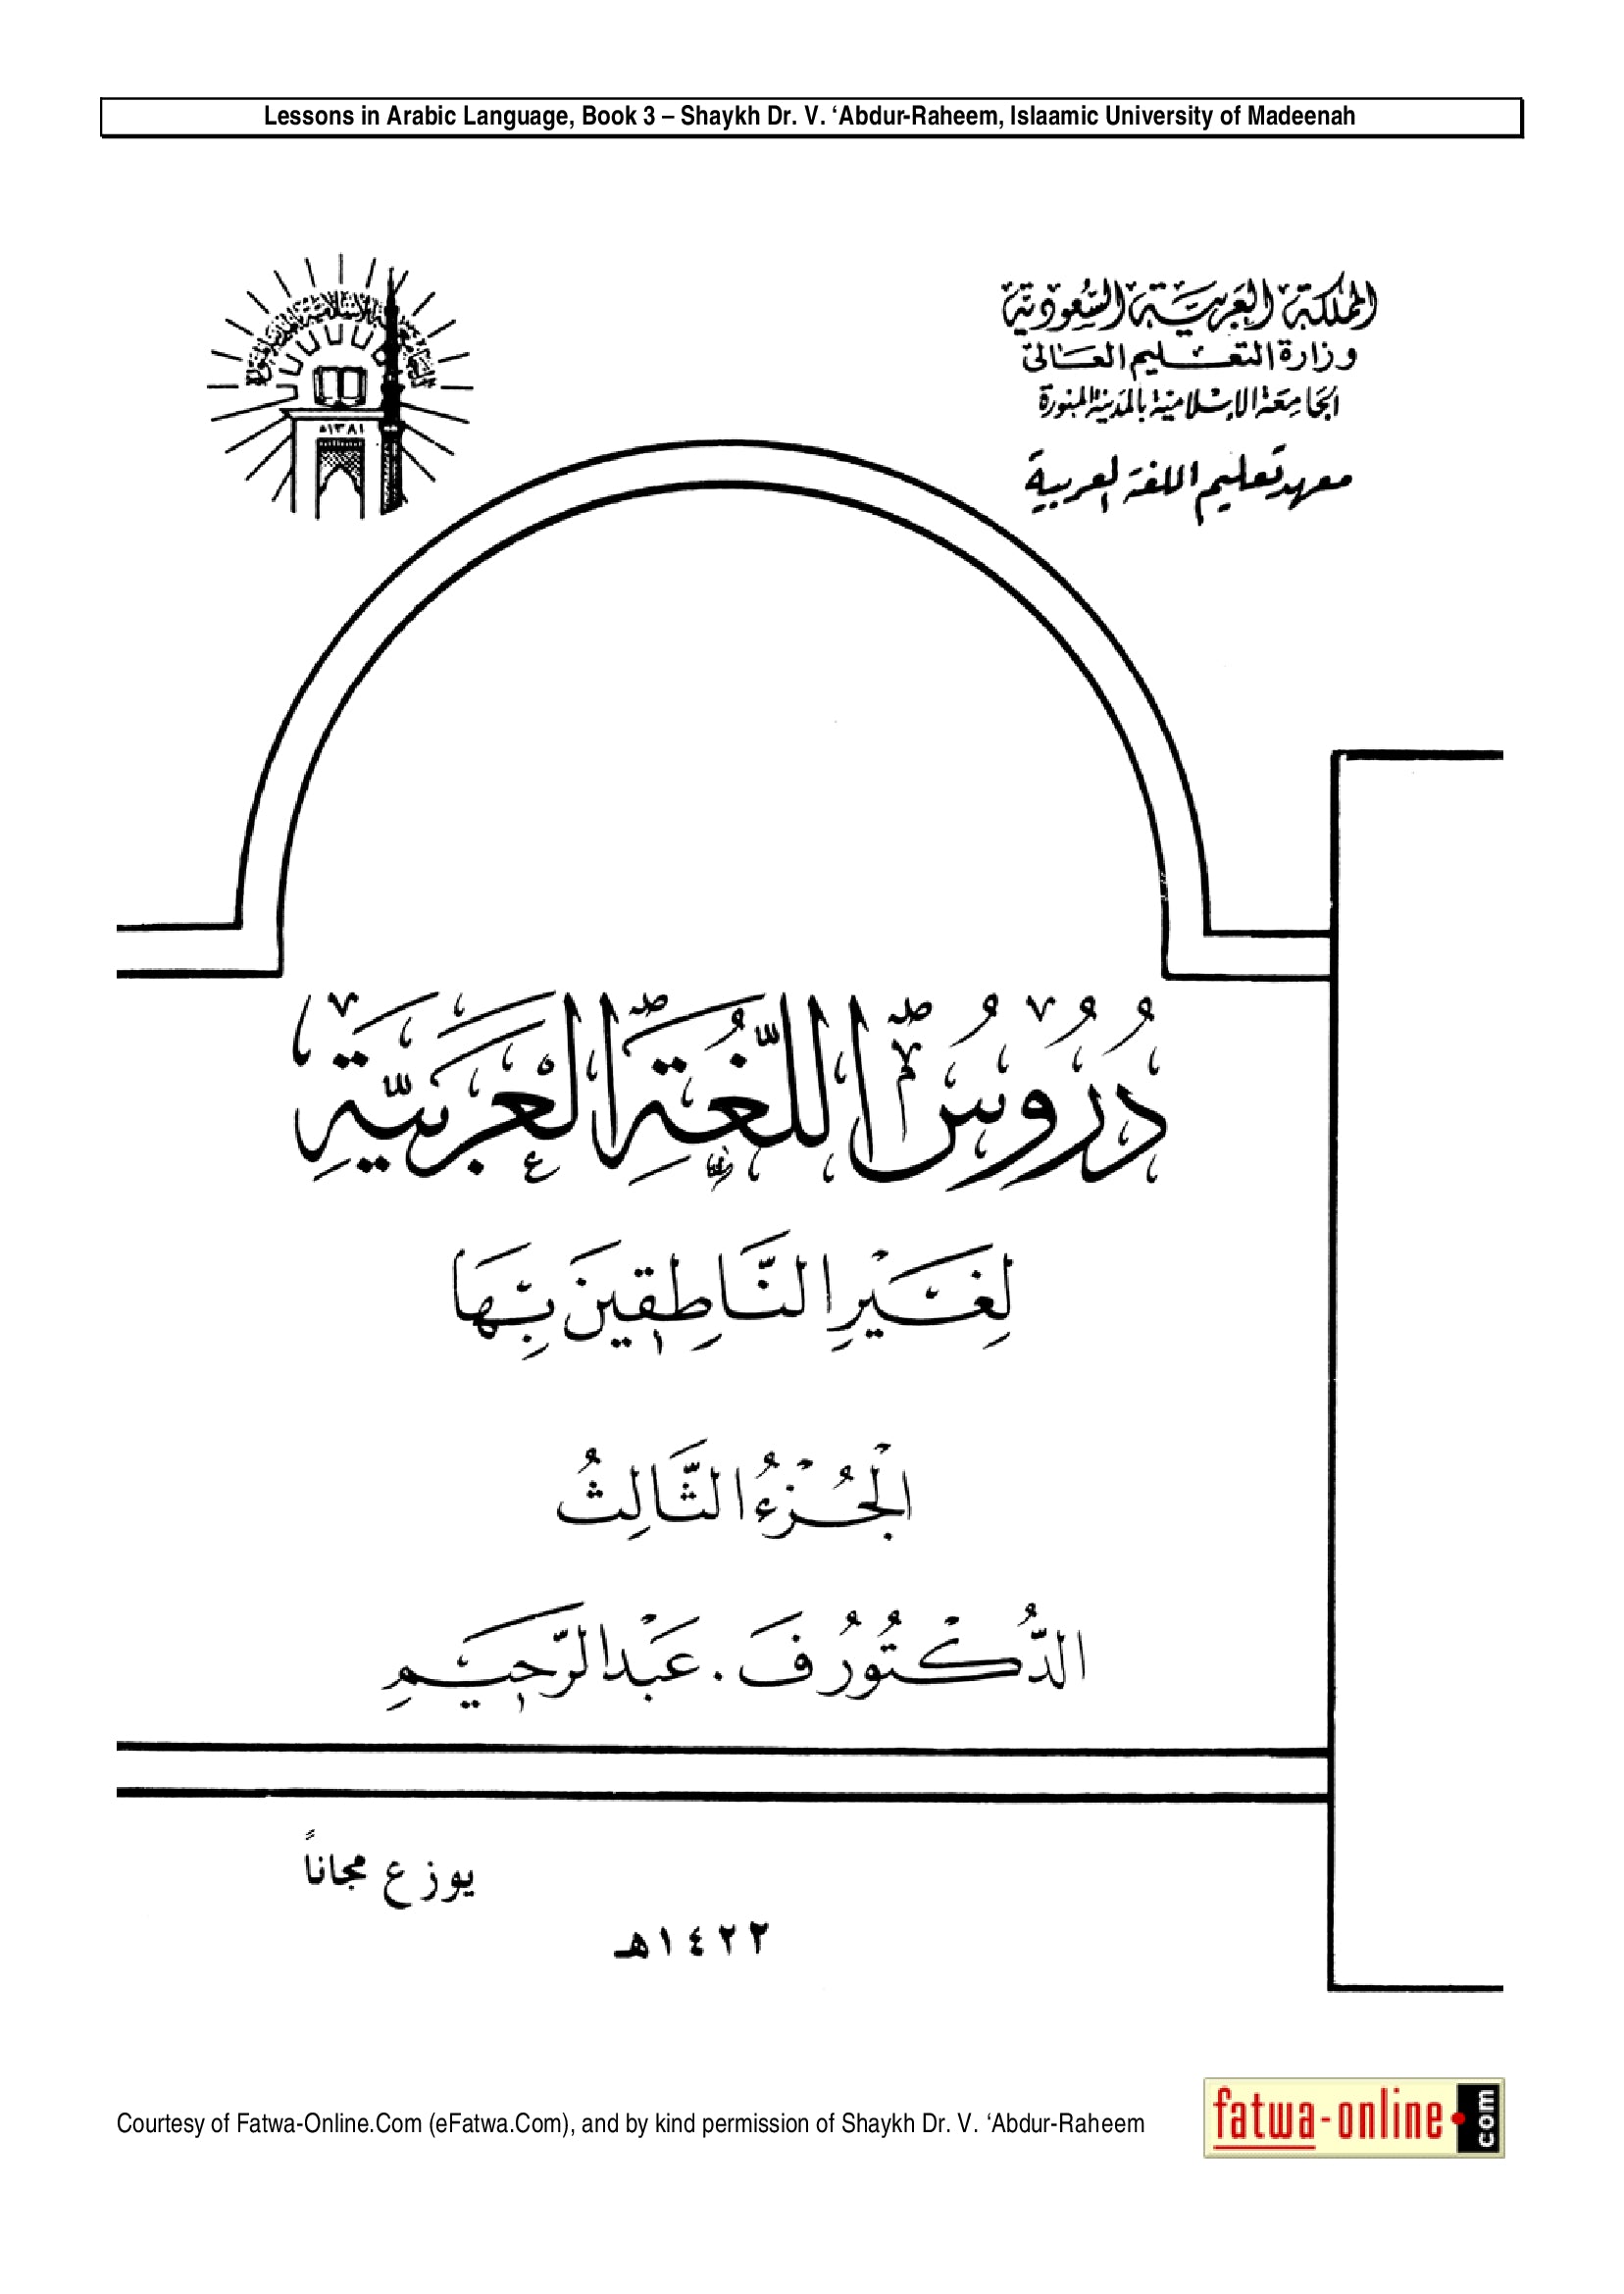 Lessons in Arabic Language, Book 3 – Shaykh Dr. V. ‘Abdur-Raheem, Islaamic University of Madeenah
المملكة العربية السعودية
وزارة التعليم العالي
الجامعة الإسلامية بالمدينة المنورة
معهد تعليم اللغة العربية
١٣٨١هـ
دُرُوسُ اللُّغَةِ الْعَرَبِيَّةِ
لِغَيْرِ النَّاطِقِينَ بِهَا
الْجُزْءُ الثَّالِثُ
الدُّكْتُورُ فَ . عَبْدالرَّحِيمِ
يوزع مجاناً
١٤٢٢هـ
Courtesy of Fatwa-Online.Com (eFatwa.Com), and by kind permission of Shaykh Dr. V. ‘Abdur-Raheem
fatwa-online.com